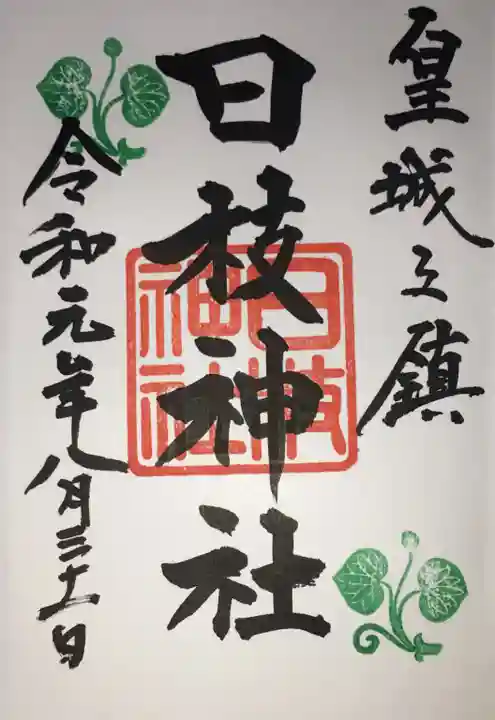 皇城之鎮
日枝神社
令和元年八月三十一日
日枝
神社